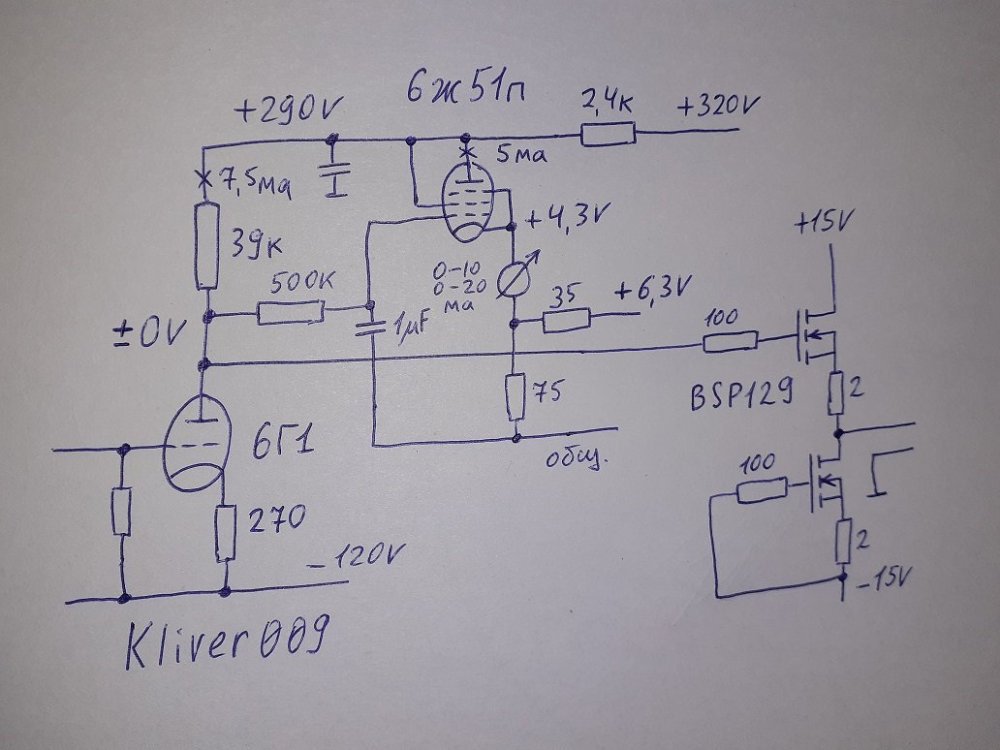 6ж51п
+290V
2,4к
+320V
5ма
7,5ма
+4,3V
+15V
39к
500к
0-10
0-20
ма
35
+6,3V
±0V
1μF
100
BSP129
2
75
6Г1
общ.
100
270
2
-120V
-15V
Kliver009